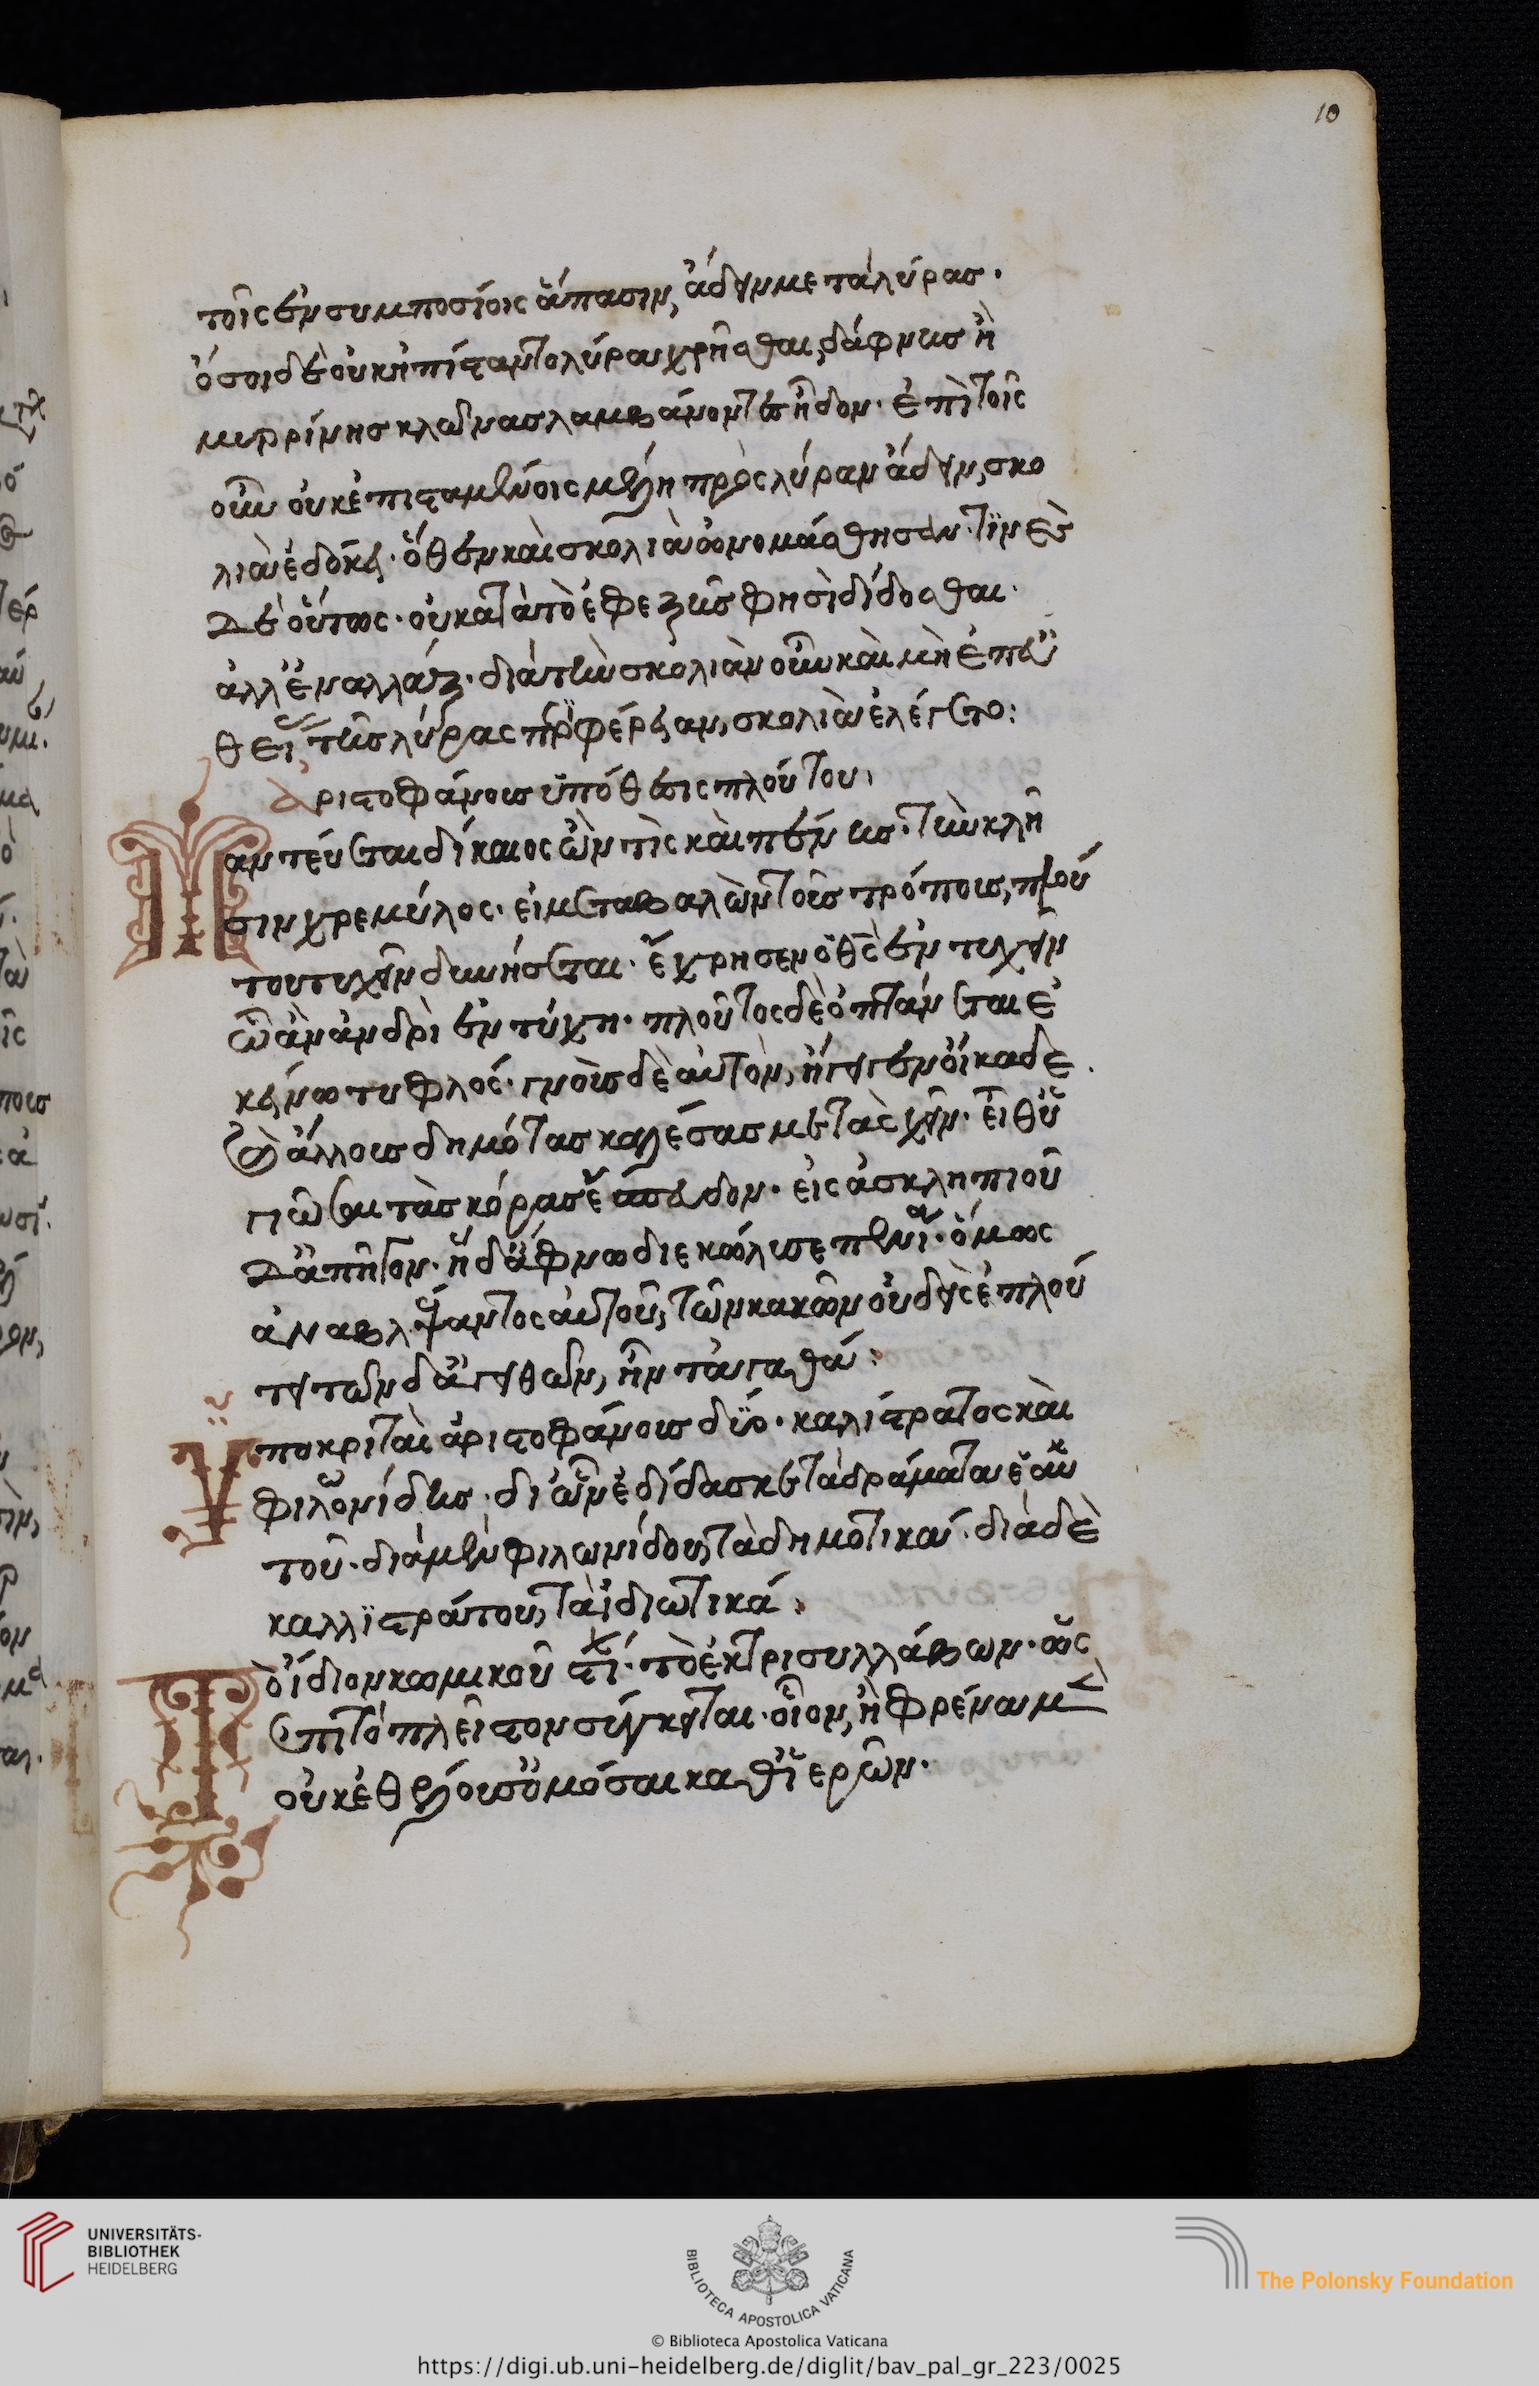 10
τοῖς ἐν συμποσίοις ἅπασιν, ἄδειν μετὰ λύρας·
ὅσοι δὲ οὐκ ἠπίσταντο λύρα χρῆσθαι, δάφνης ἢ
μυρρίνης κλῶνας λαμβάνοντες ἦδον· ἐπὶ τοῖς
οὖν οὐκ ἐπισταμένοις μέλη πρὸς λύραν ἄδειν, σκο
λιὰ ἐδόκει· ὅθεν καὶ σκολιὰ ὠνομάσθησαν· τινὲς
δὲ οὕτως· οὐ κατὰ τὸ ἐφεξῆς φησὶ δίδοσθαι·
ἀλλ' ἐναλλάξ· διὰ τὴν σκολιὰν οὖν καὶ μὴ ἐπ' εὐ
θεῖ, τῆς λύρας περιφέρειαν, σκολιὰ ἐλέγετο:
ἀριστοφάνους ὑπόθεσις πλούτου,
Μαντεύεται δίκαιος ὢν τὶς καὶ πένης· τὴν κλῆ
σιν χρεμύλος· εἰ μεταβαλὼν τοὺς τρόπους, πλού
του τυχεῖν δυνήσεται· ἔχρησεν ὁ θεὸς ἐντυχεῖν
ᾧ ἂν ἀνδρὶ ἐντύχη· πλοῦτος δὲ ὀπτάνεται ἐ
κείνω τυφλός· γνοὺς δὲ αὐτὸν, ἤγαγεν οἴκαδε
ἄλλους δημότας καλέσας μετασχεῖν· εἶθ' ὑ
γιῶσαι τὰς κόρας ἔσπευδον· εἰς ἀσκληπιοῦ
δ' ἀπῆγον· ἡ δ' ἄφνω διεκώλυσε πενία· ὅμως
ἀναβλέψαντος αὐτοῦ, τῶν κακῶν οὐδεὶς ἐπλού
τει τῶν δ' ἀγαθῶν, ἦν τἀγαθά:
Ὑποκριταὶ ἀριστοφάνους δύο· καλίστρατος καὶ
φιλωνίδης· δι' ὧν ἐδίδασκε τὰ δράματα ἑαυ
τοῦ· διὰ μὲν φιλωνίδου, τὰ δημοτικά· διὰ δὲ
καλλιστράτου, τὰ ἰδιωτικά:
Τὸ ἴδιον κωμικοῦ ἐστί· τὸ ἐκ τρισυλλάβων· ὡς
ἐπιτοπλεῖστον σύγκειται· οἷον, ἡ φρένα μὲν
οὐκ ἐθέλουσ' ὀμόσαι καθ' ἱερῶν·
UNIVERSITÄTS-
BIBLIOTHEK
HEIDELBERG
BIBLIOTECA APOSTOLICA VATICANA
© Biblioteca Apostolica Vaticana
The Polonsky Foundation
https://digi.ub.uni-heidelberg.de/diglit/bav_pal_gr_223/0025